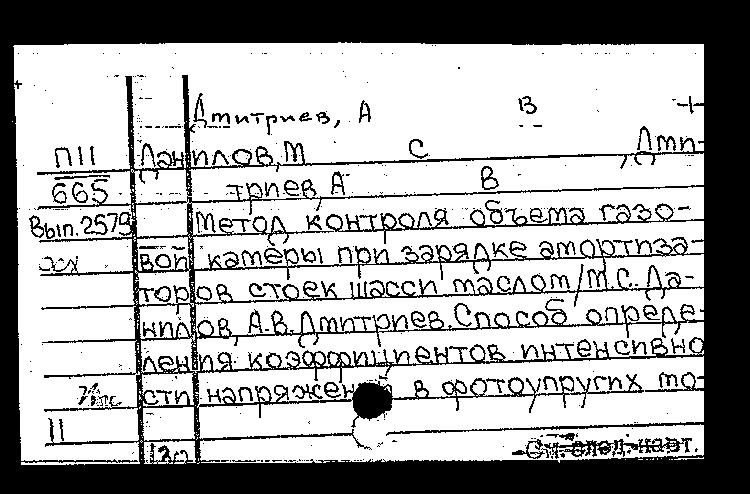 Дмитриев, А В
П11 Данилов, М С , Дми-
665 триев, А В
Вып.2579 Метод контроля объема газо-
осх вой камеры при зарядке амортиза-
торов стоек шасси маслом/М.С. Да-
нилов, А.В. Дмитриев. Способ опреде-
ления коэффициентов интенсивно
сти напряжен в фотоупругих мо-
11
130 См. след. карт.